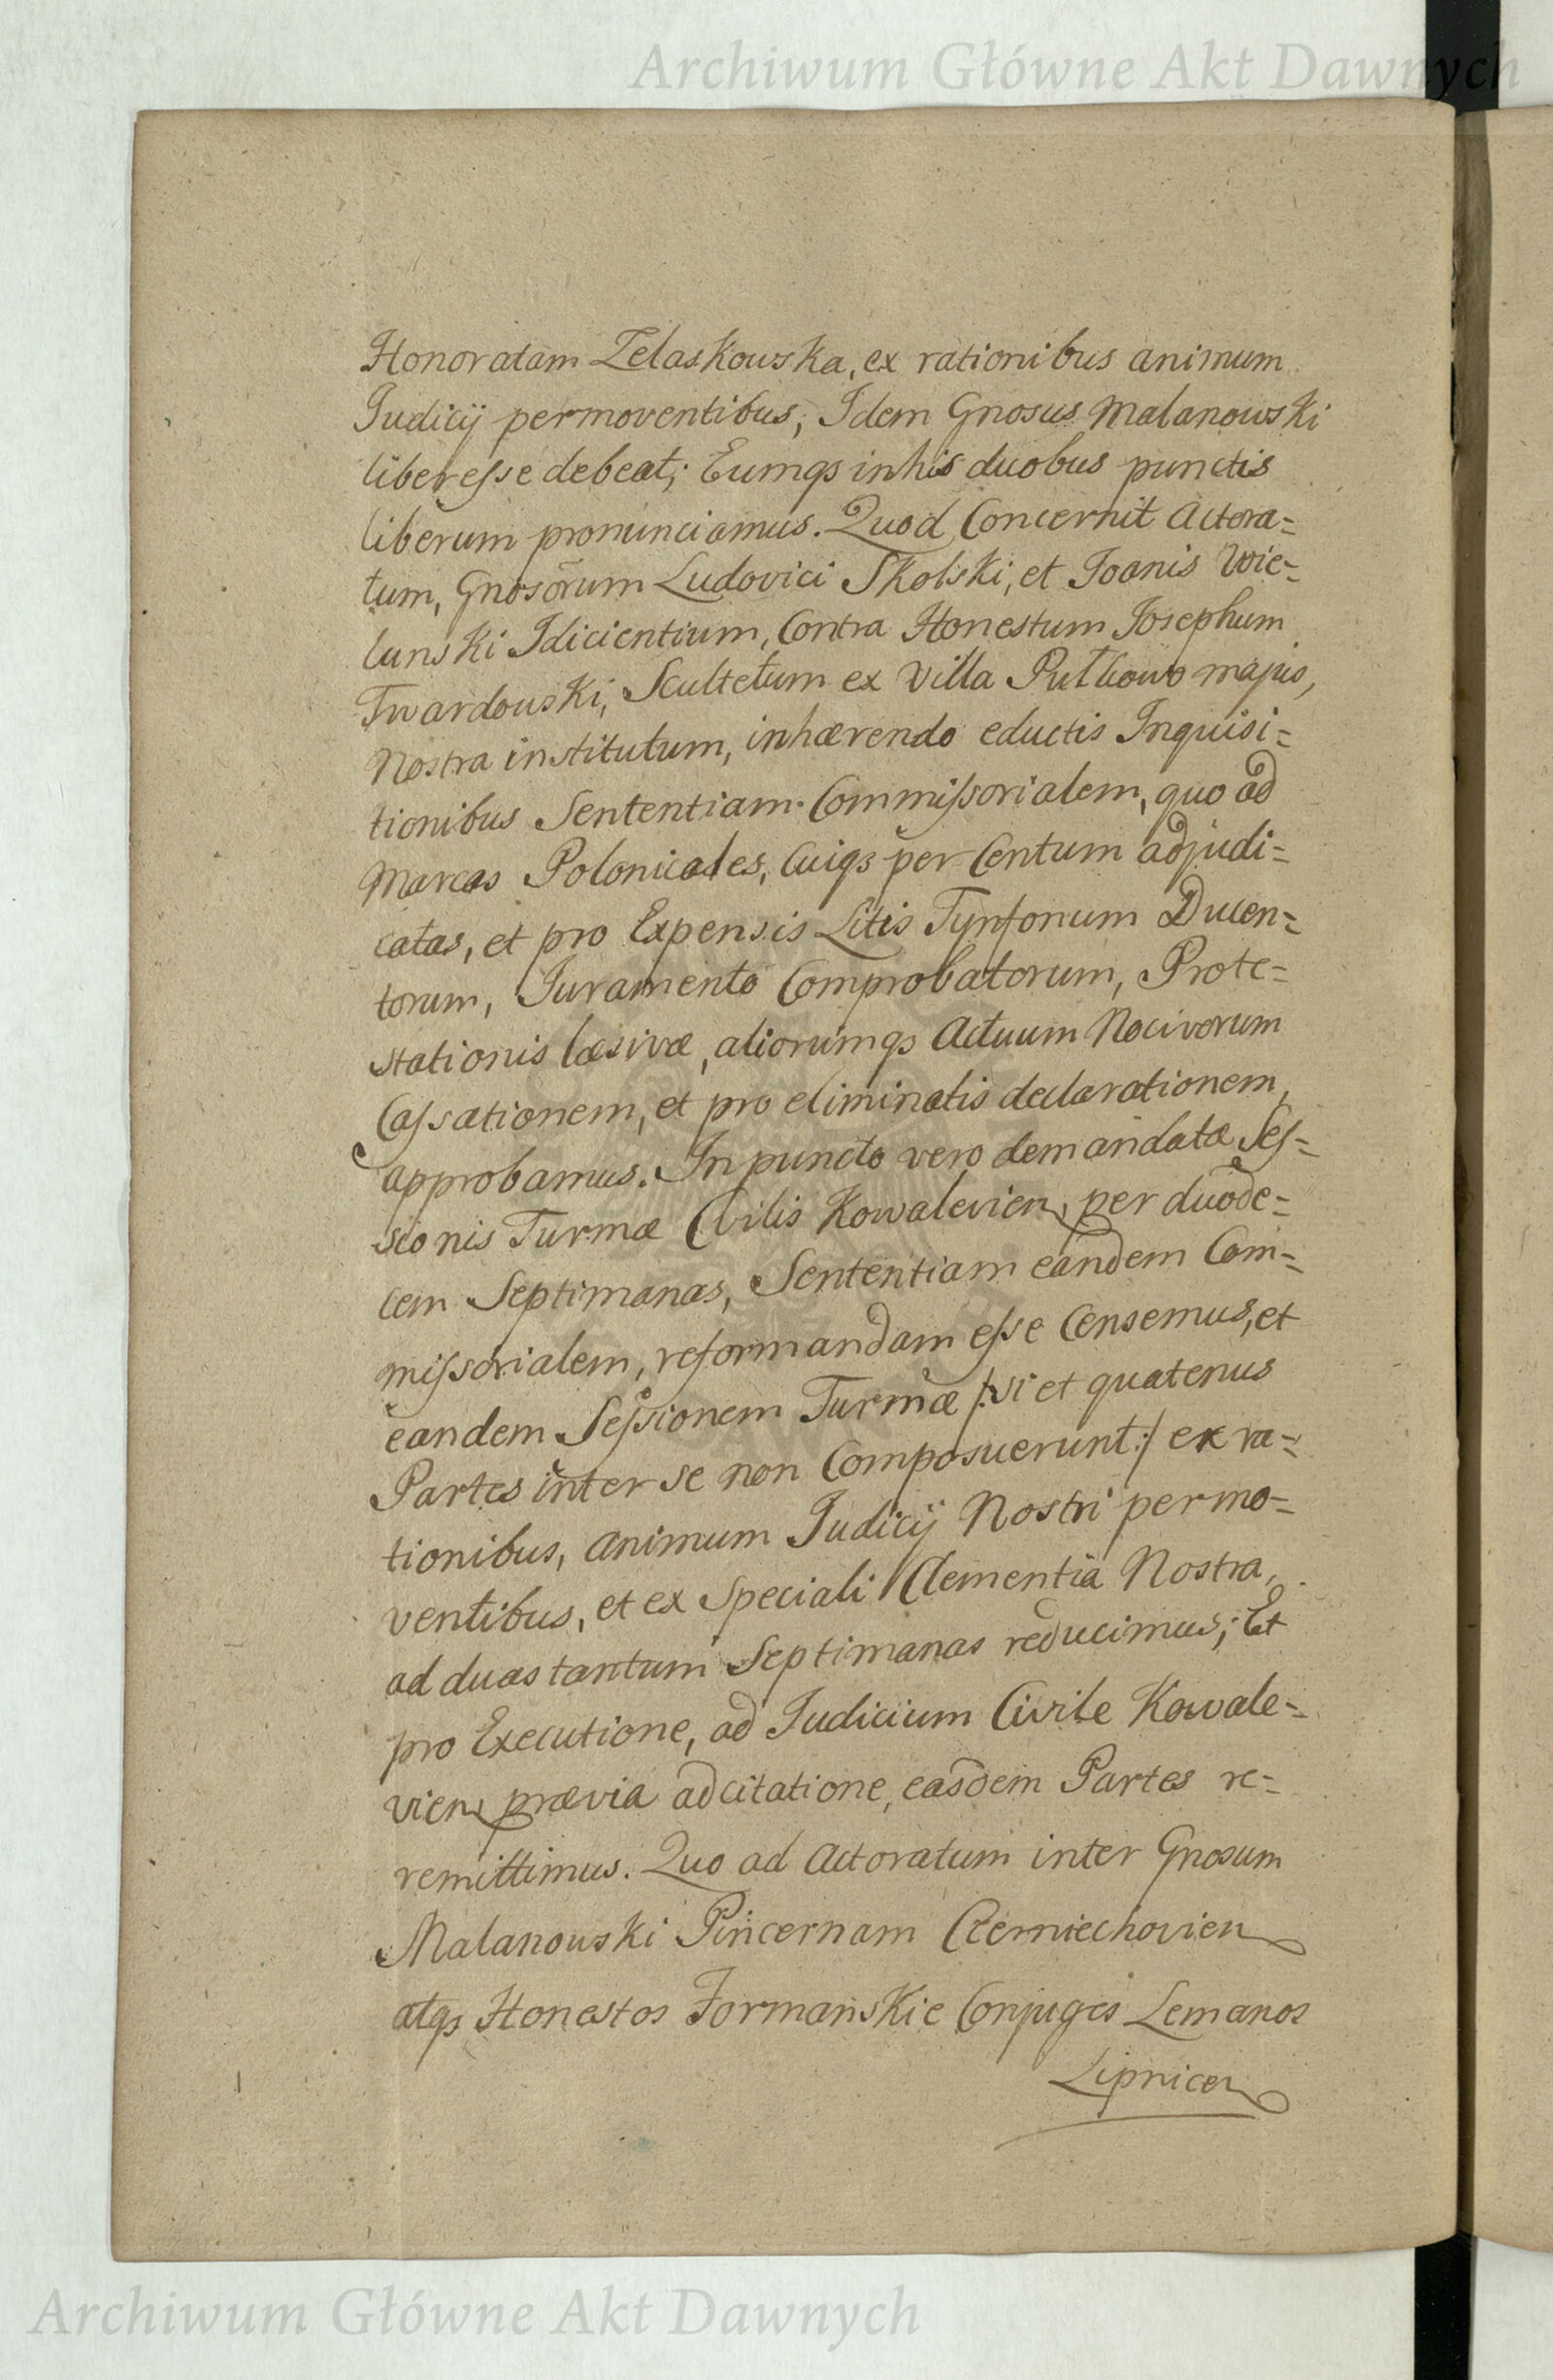 Archiwum Główne Akt Dawnych
Honoratam Zelaskowska, ex rationibus animum
Judicij permoventibus, Idem Gnosus Malanowski
liber esse debeat; Eumqs in his duobus punctis
liberum pronunciamus. Quod Concernit Actora=
tum, Gnosorum Ludovici Skolski, et Joanis Wie=
lunski Idicientium, Contra Honestum Josephum
Twardowski, Scultetum ex Villa Putkowo majus,
Nostra institutum, inhærendo eductis Inquisi=
tionibus Sententiam Commissorialem, quo ad
Marcas Polonicales, Cuiqs per Centum adjudi=
catas, et pro Expensis Litis Tynfonum Ducen=
torum, Juramento Comprobatorum, Prote=
stationis læsivæ, aliorumqs Actuum Nocivorum
Cassationem, et pro eliminatis declarationem,
approbamus. In puncto vero demandatæ Ses=
sionis Turmæ Civilis Kowalevien, per duode=
cem Septimanas, Sententiam eandem Com=
missorialem, reformandam esse Censemus, et
eandem Sessionem Turmæ /: si et quatenus
Partes inter se non Composuerunt :/ ex ra=
tionibus, animum Judicij Nostri permo=
ventibus, et ex Speciali Clementia Nostra,
ad duas tantum Septimanas reducimus; Et
pro Executione, ad Judicium Civile Kowale=
vien prævia adcitatione, easdem Partes re=
remittimus. Quo ad Actoratum inter Gnosum
Malanowski Pincernam Czerniechovien
atqs Honestos Formanskie Conjuges Lemanos
Lipnicen
Archiwum Główne Akt Dawnych